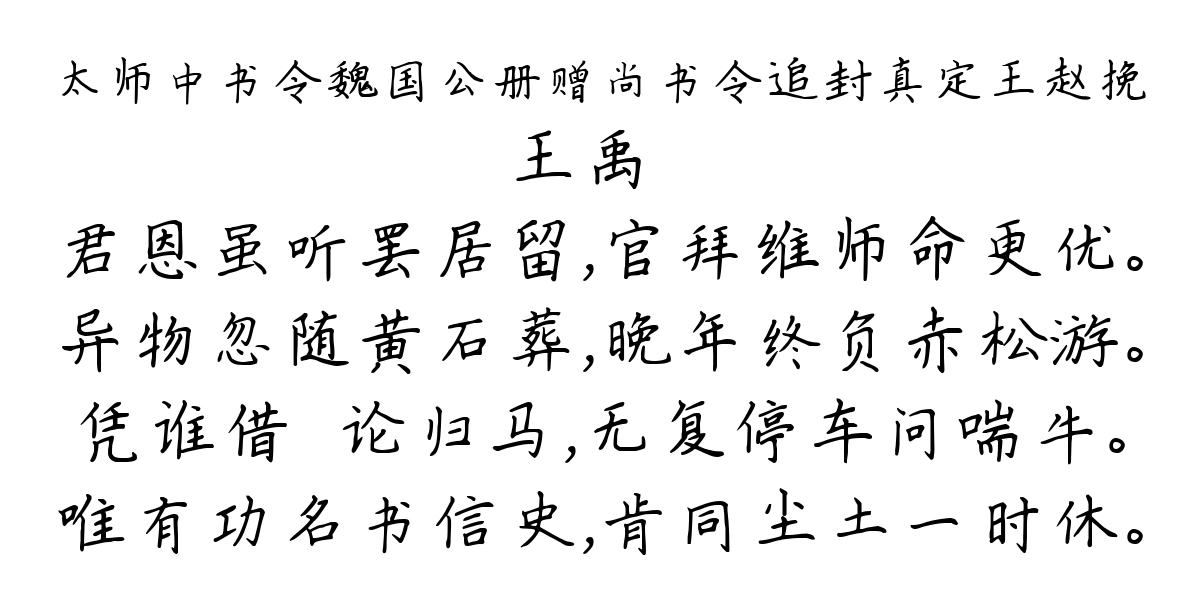 太师中书令魏国公册赠尚书令追封真定王赵挽
王禹
君恩虽听罢居留,官拜维师命更优。
异物忽随黄石葬,晚年终负赤松游。
凭谁借 论归马,无复停车问喘牛。
唯有功名书信史,肯同尘土一时休。